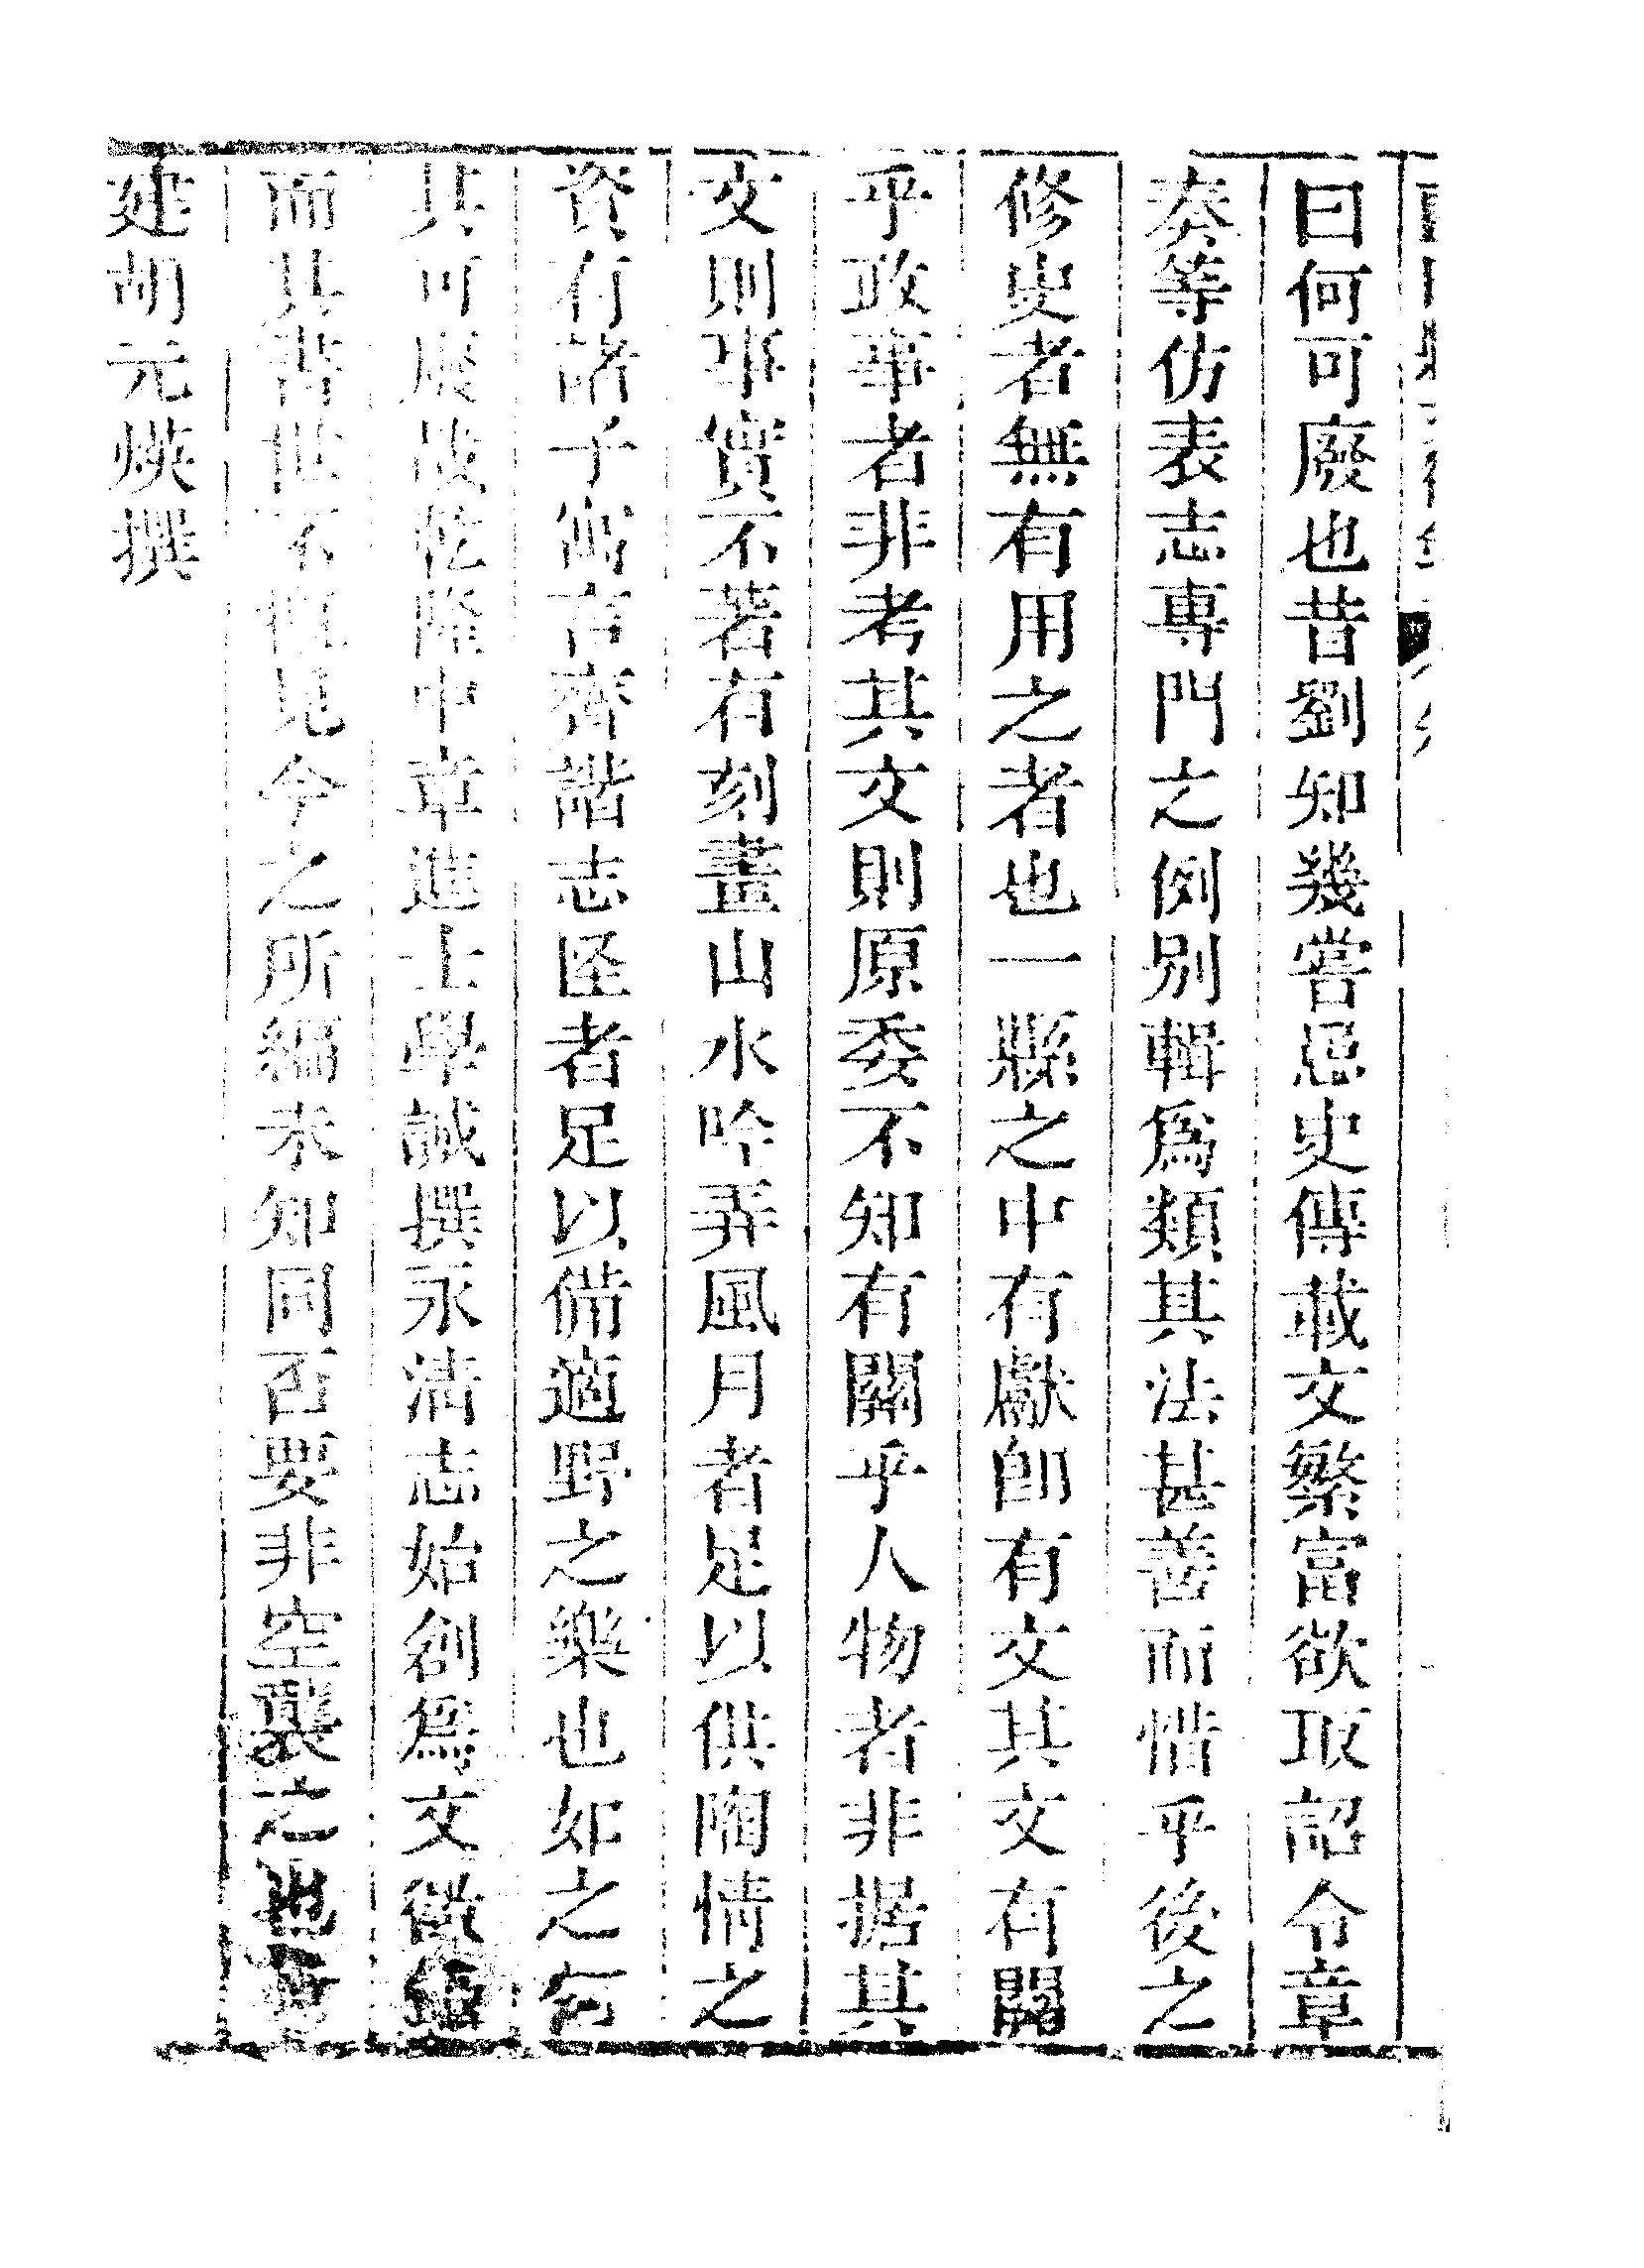 曰何可廢也昔劉知幾嘗忌史傳載文繁富欲取詔令章
奏等仿表志專門之例別輯爲類其法甚善而惜乎後之
修史者無有用之者也一縣之中有獻卽有文其文有關
乎政事者非考其文則原委不知有關乎人物者非据其
文則事實不著有刻畫山水吟弄風月者足以供陶情之
資有諸子寓言齊諧志怪者足以備適野之樂也如之何
其可廢歟乾隆中章進士學誠撰永清志始創爲文徵
而其書世不恒見今之所編未知同否要非空襲之也
建胡元煐撰